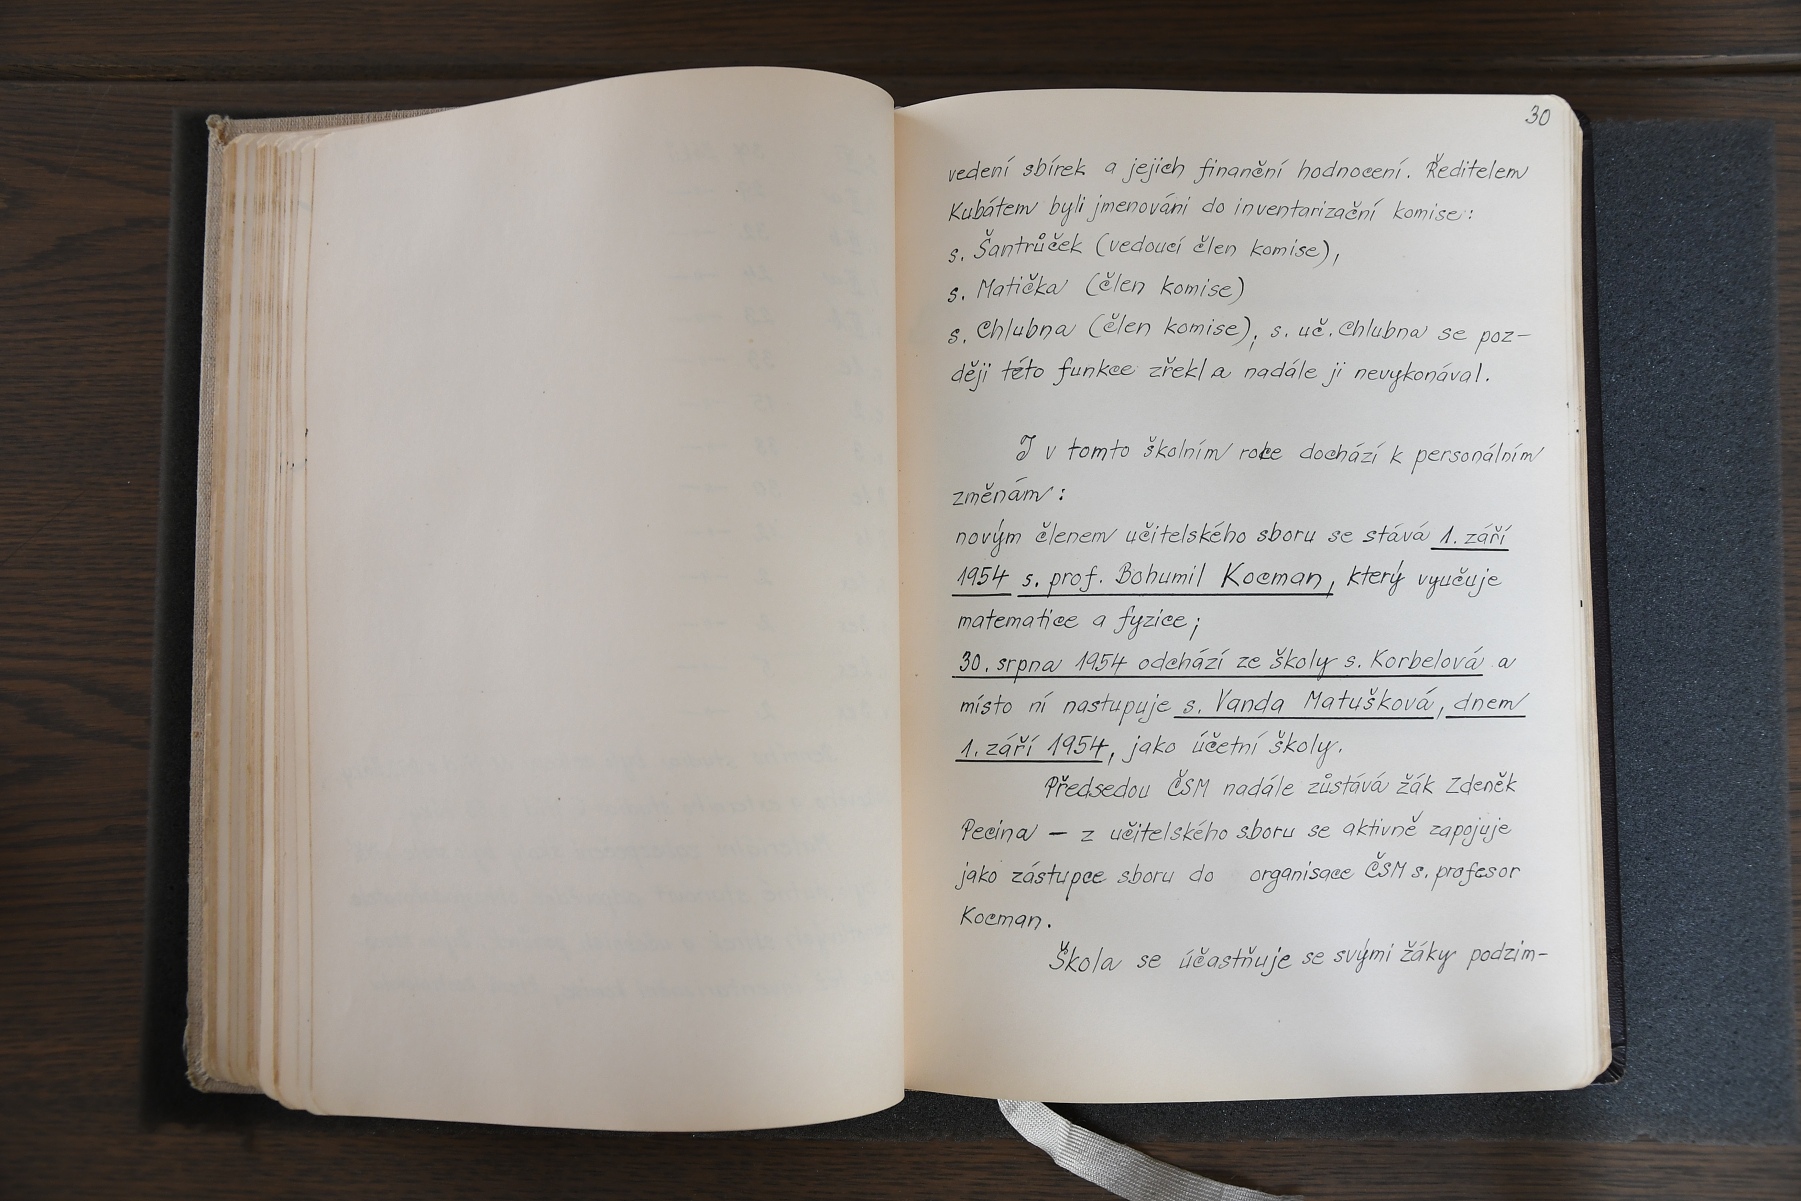 30
vedení sbírek a jejich finanční hodnocení. Ředitelem
Kubátem byli jmenováni do inventarizační komise:
s. Šantrůček (vedoucí člen komise),
s. Matička (člen komise)
s. Chlubna (člen komise), s. uč. Chlubna se poz-
ději této funkce zřekl a nadále ji nevykonával.
I v tomto školním roce dochází k personálním
změnám:
novým členem učitelského sboru se stává 1. září
1954 s. prof. Bohumil Kocman, který vyučuje
matematice a fyzice;
30. srpna 1954 odchází ze školy s. Korbelová a
místo ní nastupuje s. Vanda Matušková, dnem
1. září 1954, jako účetní školy.
Předsedou ČSM nadále zůstává žák Zdeněk
Pecina – z učitelského sboru se aktivně zapojuje
jako zástupce sboru do organisace ČSM s. profesor
Kocman.
Škola se účastňuje se svými žáky podzim-